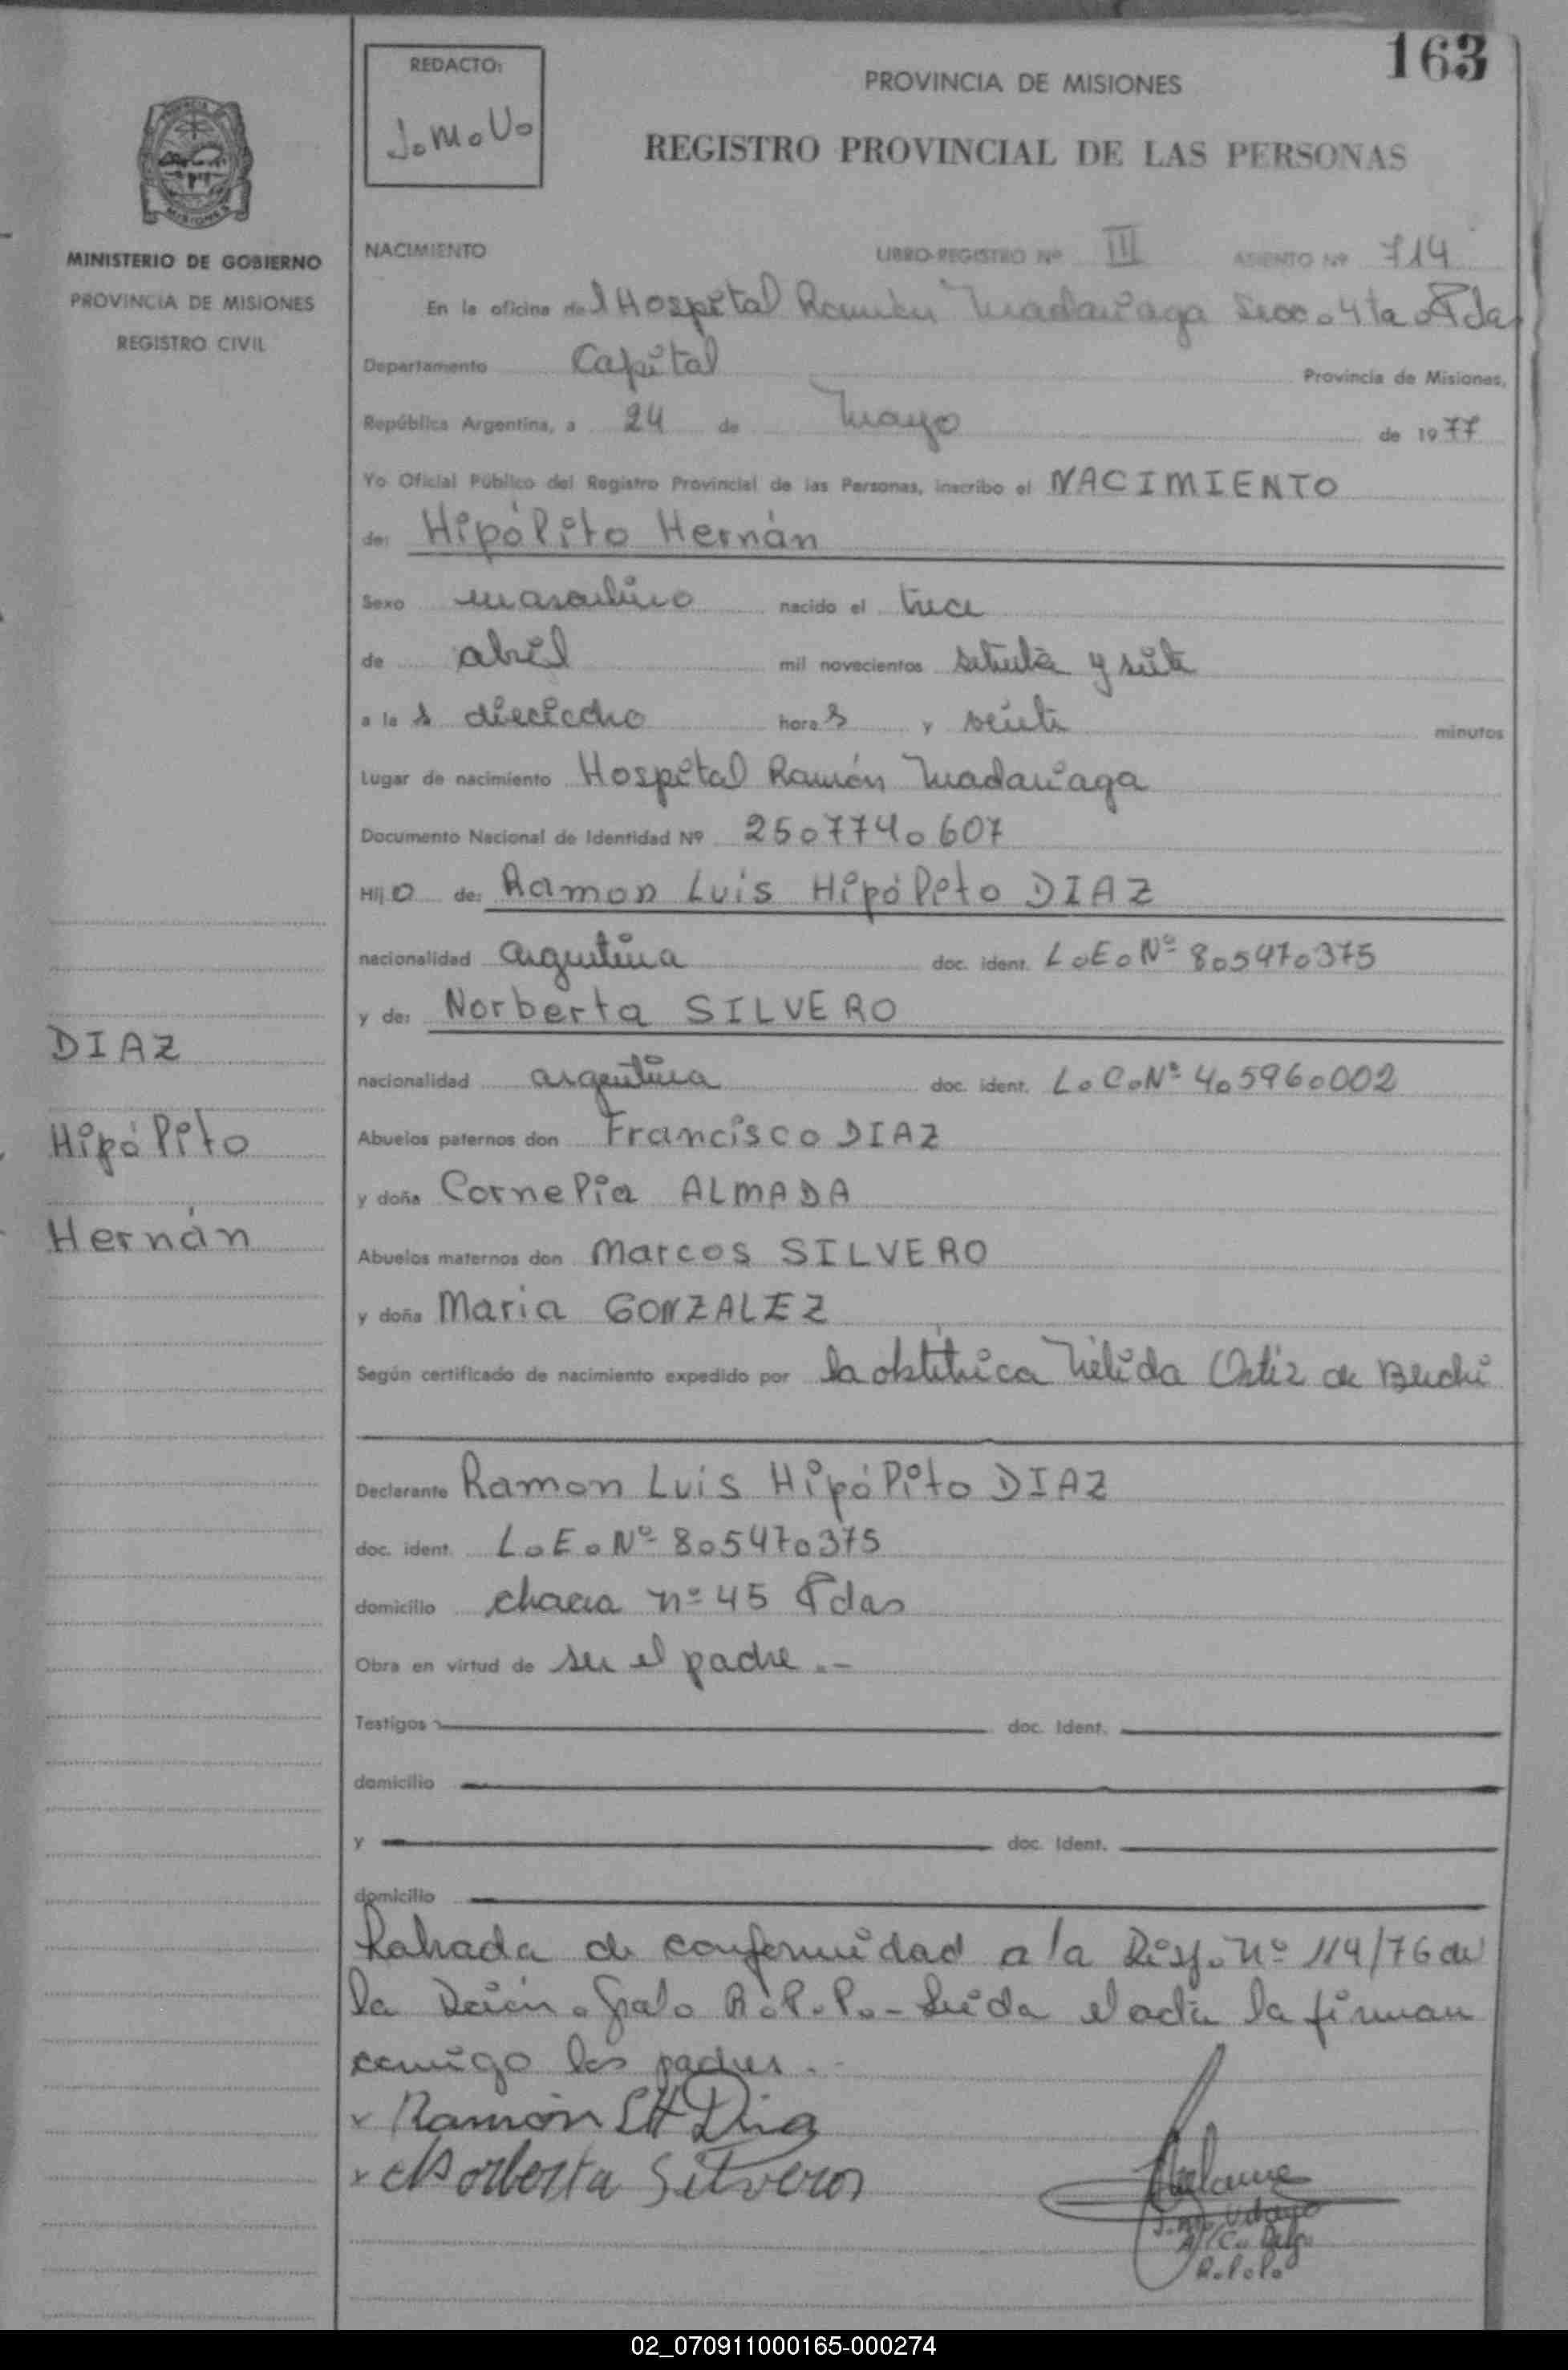 163
REDACTO:
J.M.V.
PROVINCIA DE MISIONES
REGISTRO PROVINCIAL DE LAS PERSONAS
MISIONES
MINISTERIO DE GOBIERNO
PROVINCIA DE MISIONES
REGISTRO CIVIL
NACIMIENTO LIBRO-REGISTRO Nº III ASIENTO Nº 714
En la oficina del Hospital Ramón Madariaga Secc. 4ta. Pdas
Departamento Capital Provincia de Misiones,
República Argentina, a 24 de Mayo de 1977
Yo Oficial Público del Registro Provincial de las Personas, inscribo el NACIMIENTO
de: Hipólito Hernán
Sexo masculino nacido el trece
de abril mil novecientos setenta y siete
a las dieciocho horas y veinte minutos
Lugar de nacimiento Hospital Ramón Madariaga
Documento Nacional de Identidad Nº 25.774.607
Hijo de: Ramon Luis Hipólito DIAZ
nacionalidad argentina doc. ident. L.E.Nº 8.547.375
y de: Norberta SILVERO
nacionalidad argentina doc. ident. L.C.Nº 4.596.002
Abuelos paternos don Francisco DIAZ
y doña Cornelia ALMADA
Abuelos maternos don Marcos SILVERO
y doña Maria GONZALEZ
Según certificado de nacimiento expedido por la obstétrica Nélida Ortiz de
Declarante Ramon Luis Hipólito DIAZ
doc. ident. L.E.Nº 8.547.375
domicilio chacra nº 45 Pdas
Obra en virtud de ser el padre.-
Testigos doc. Ident.
domicilio
y doc. Ident.
domicilio
Labrada de conformidad a la Disp. Nº 114/76 de
la Dción. Gral. R.P.P.- Leída el acta la firman
conmigo los padres.-
x Ramón LH Diaz
x Norberta Silvero
R.P.P.
DIAZ
Hipólito
Hernán
02_070911000165-000274